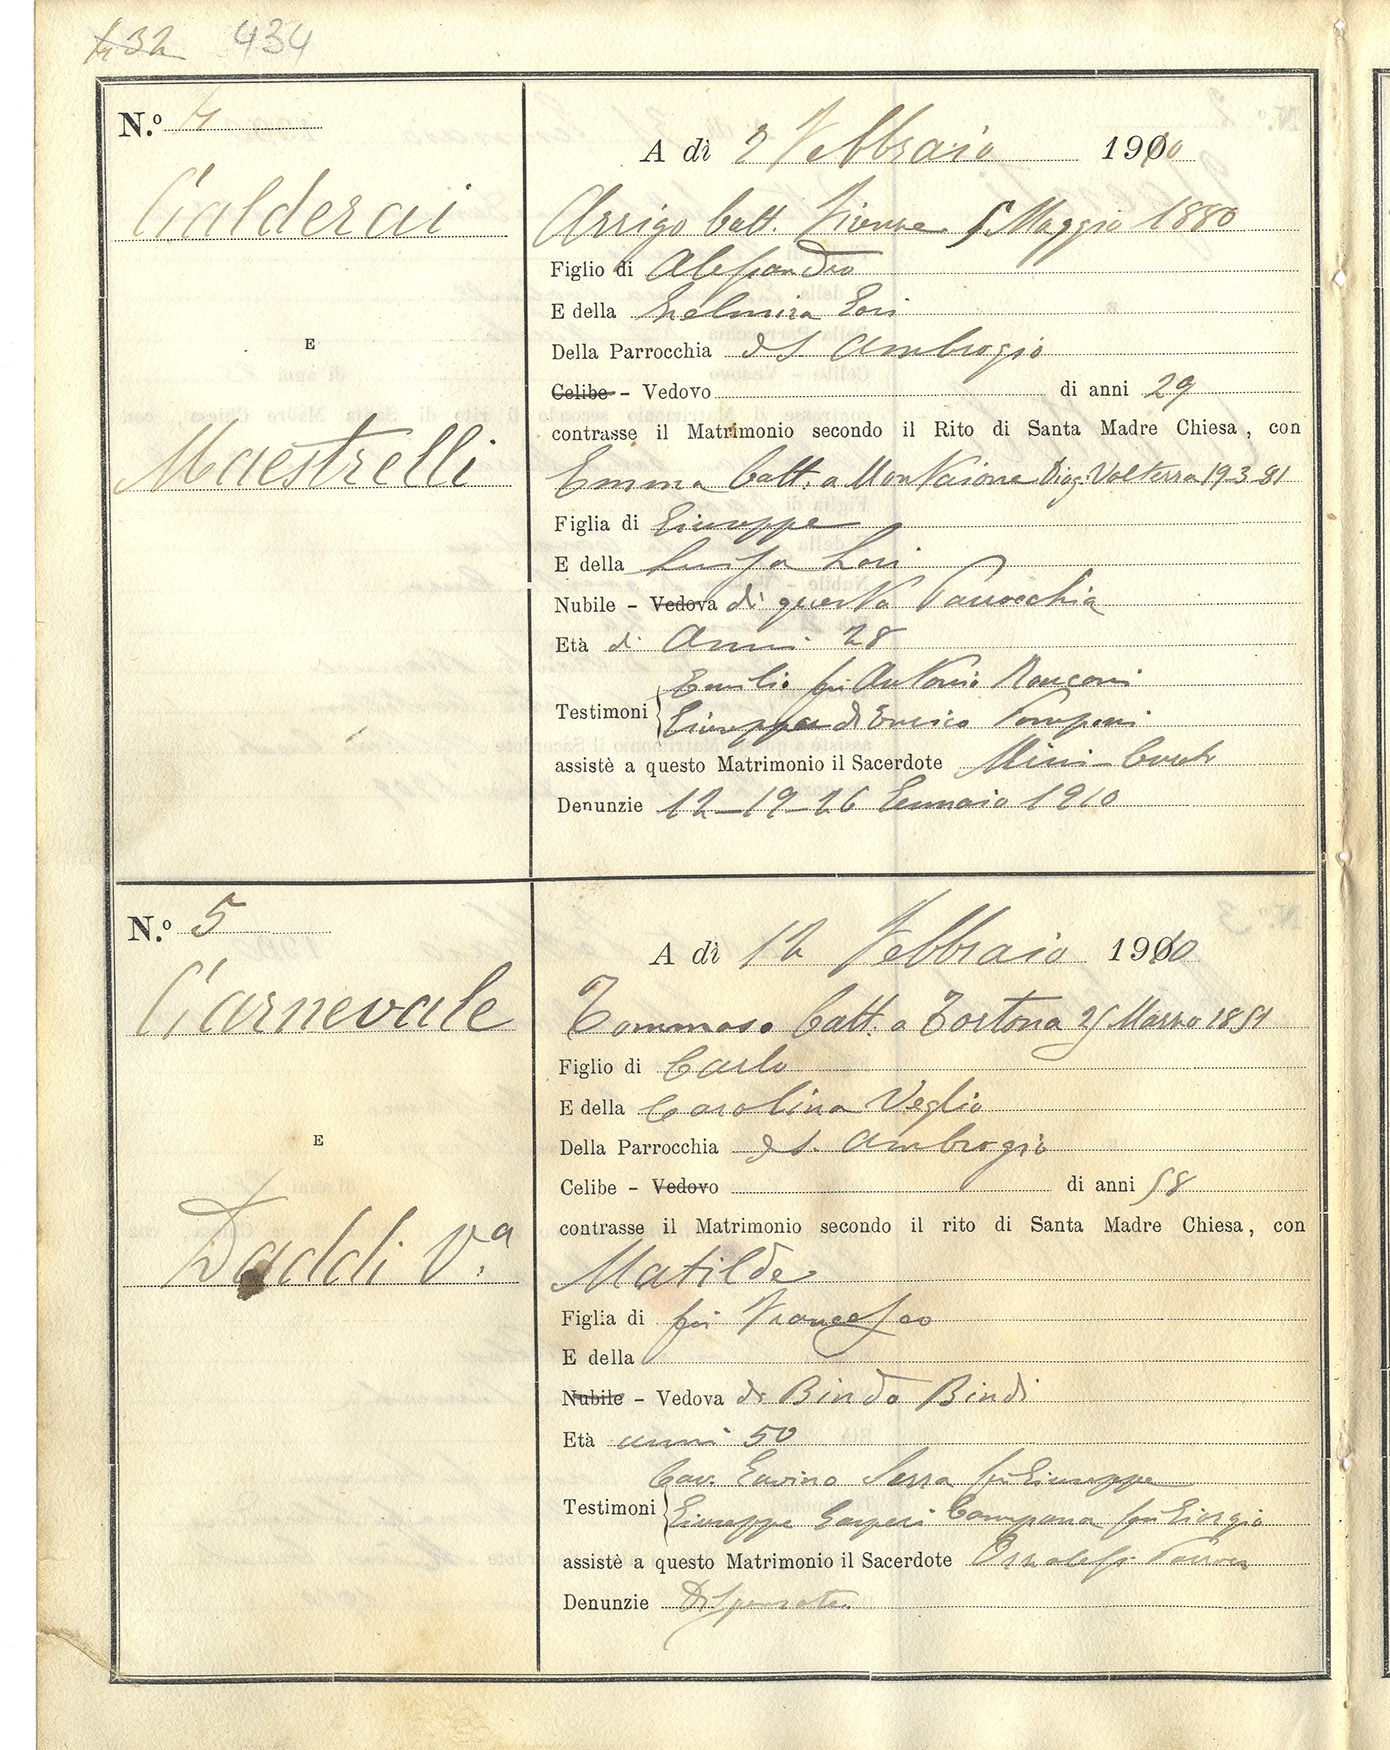 432 434
N.º 4
A dì 2 Febbraio 1910
Calderai
Arrigo Batt. Firenze 5 Maggio 1880
Figlio di Alessandro
E della Zelmira
E
Della Parrocchia di S. Ambrogio
Celibe - Vedovo di anni 29
contrasse il Matrimonio secondo il Rito di Santa Madre Chiesa, con
Maestrelli
Emma Batt. a Montaione Diog. Volterra 19-3-81
Figlia di Giuseppe
E della Luisa Lori
Nubile - Vedova di questa Parrocchia
Età di Anni 28
Emilio fu Antonio Ronconi
Testimoni
Giuseppe di Enrico Pomponi
assistè a questo Matrimonio il Sacerdote Mini
Denunzie 12-19-26 Gennaio 1910
N.º 5
A dì 12 Febbraio 1910
Carnevale
Tommaso Batt. a Tortona 25 Marzo 1851
Figlio di Carlo
E della Carolina Veglio
E
Della Parrocchia di S. Ambrogio
Celibe - Vedovo di anni 58
contrasse il Matrimonio secondo il rito di Santa Madre Chiesa, con
Daddi V.ª
Matilde
Figlia di fu Francesco
E della
Nubile - Vedova di Bindo Bindi
Età anni 50
Cav. Gavino Serra fu Giuseppe
Testimoni
Giuseppe Gasperi Campana fu Giorgio
assistè a questo Matrimonio il Sacerdote
Denunzie Dispensate